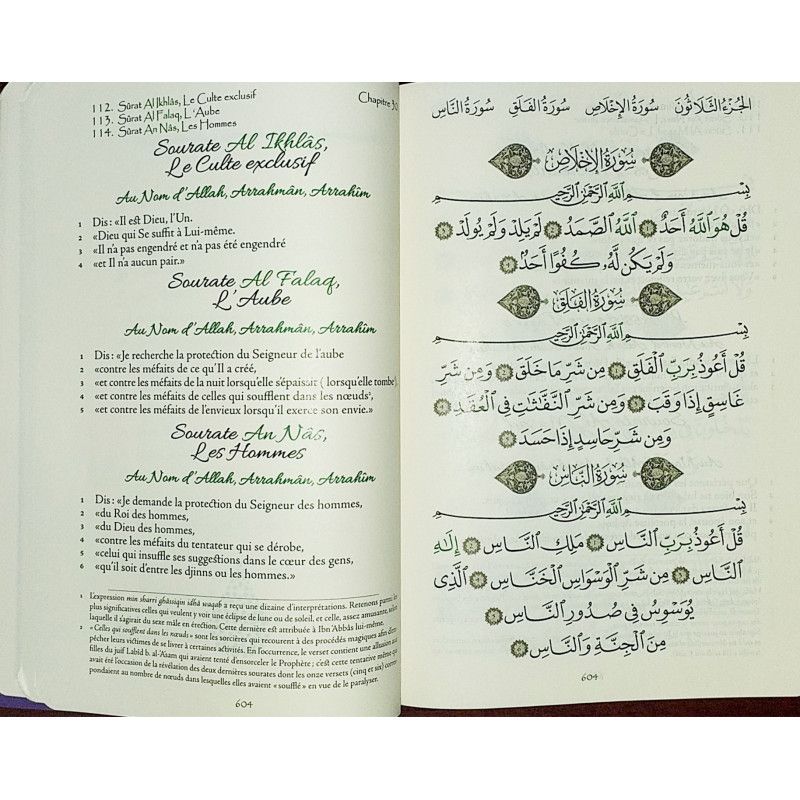 112. Sûrat Al Ikhlâs, Le Culte exclusif
113. Sûrat Al Falaq, L'Aube
114. Sûrat An Nâs, Les Hommes
Chapitre 30
Sourate Al Ikhlâs,
Le Culte exclusif
Au Nom d'Allah, Arrahmân, Arrahîm
1 Dis : «Il est Dieu, l'Un.
2 «Dieu qui Se suffit à Lui-même.
3 «Il n'a pas engendré et n'a pas été engendré
4 «et Il n'a aucun pair.»
Sourate Al Falaq,
L'Aube
Au Nom d'Allah, Arrahmân, Arrahîm
1 Dis : «Je recherche la protection du Seigneur de l'aube
2 «contre les méfaits de ce qu'Il a créé,
3 «et contre les méfaits de la nuit lorsqu'elle s'épaissit ( lorsqu'elle tombe¹).
4 «et contre les méfaits de celles qui soufflent dans les nœuds²,
5 «et contre les méfaits de l'envieux lorsqu'il exerce son envie.»
Sourate An Nâs,
Les Hommes
Au Nom d'Allah, Arrahmân, Arrahîm
1 Dis : «Je demande la protection du Seigneur des hommes,
2 «du Roi des hommes,
3 «du Dieu des hommes,
4 «contre les méfaits du tentateur qui se dérobe,
5 «celui qui insuffle ses suggestions dans le cœur des gens,
6 «qu'il soit d'entre les djinns ou les hommes.»
1 L'expression min sharri ghâssiqin idhâ waqab a reçu une dizaine d'interprétations. Retenons parmi les
plus significatives celles qui veulent y voir une éclipse de lune ou de soleil, et celle, assez amusante, selon
laquelle il s'agirait du sexe mâle en érection. Cette dernière est attribuée à Ibn 'Abbâs lui-même.
2 « Celles qui soufflent dans les nœuds» sont les sorcières qui recourent à des procédés magiques afin d'em-
pêcher leurs victimes de se livrer à certaines activités. En l'occurrence, le verset contient une allusion aux
filles du juif Labîd b. al-'Asam qui avaient tenté d'ensorceler le Prophète ; c'est cette tentative même qui
avait été l'occasion de la révélation des deux dernières sourates dont les onze versets (cinq et six) corres-
pondaient au nombre de nœuds dans lesquelles elles avaient « soufflé » en vue de le paralyser.
604
الجُزْءُ الثَّلَاثُونَ سُورَةُ الإِخْلَاصِ سُورَةُ الفَلَقِ سُورَةُ النَّاسِ
سُورَةُ الإِخْلَاصِ
بِسْمِ ٱللَّهِ ٱلرَّحْمَٰنِ ٱلرَّحِيمِ
قُلْ هُوَ ٱللَّهُ أَحَدٌ ١ ٱللَّهُ ٱلصَّمَدُ ٢ لَمْ يَلِدْ وَلَمْ يُولَدْ ٣
وَلَمْ يَكُن لَّهُۥ كُفُوًا أَحَدٌۢ ٤
سُورَةُ الفَلَقِ
بِسْمِ ٱللَّهِ ٱلرَّحْمَٰنِ ٱلرَّحِيمِ
قُلْ أَعُوذُ بِرَبِّ ٱلْفَلَقِ ١ مِن شَرِّ مَا خَلَقَ ٢ وَمِن شَرِّ
غَاسِقٍ إِذَا وَقَبَ ٣ وَمِن شَرِّ ٱلنَّفَّٰثَٰتِ فِى ٱلْعُقَدِ ٤
وَمِن شَرِّ حَاسِدٍ إِذَا حَسَدَ ٥
سُورَةُ النَّاسِ
بِسْمِ ٱللَّهِ ٱلرَّحْمَٰنِ ٱلرَّحِيمِ
قُلْ أَعُوذُ بِرَبِّ ٱلنَّاسِ ١ مَلِكِ ٱلنَّاسِ ٢ إِلَٰهِ
ٱلنَّاسِ ٣ مِن شَرِّ ٱلْوَسْوَاسِ ٱلْخَنَّاسِ ٤ ٱلَّذِى
يُوَسْوِسُ فِى صُدُورِ ٱلنَّاسِ ٥
مِنَ ٱلْجِنَّةِ وَٱلنَّاسِ ٦
604